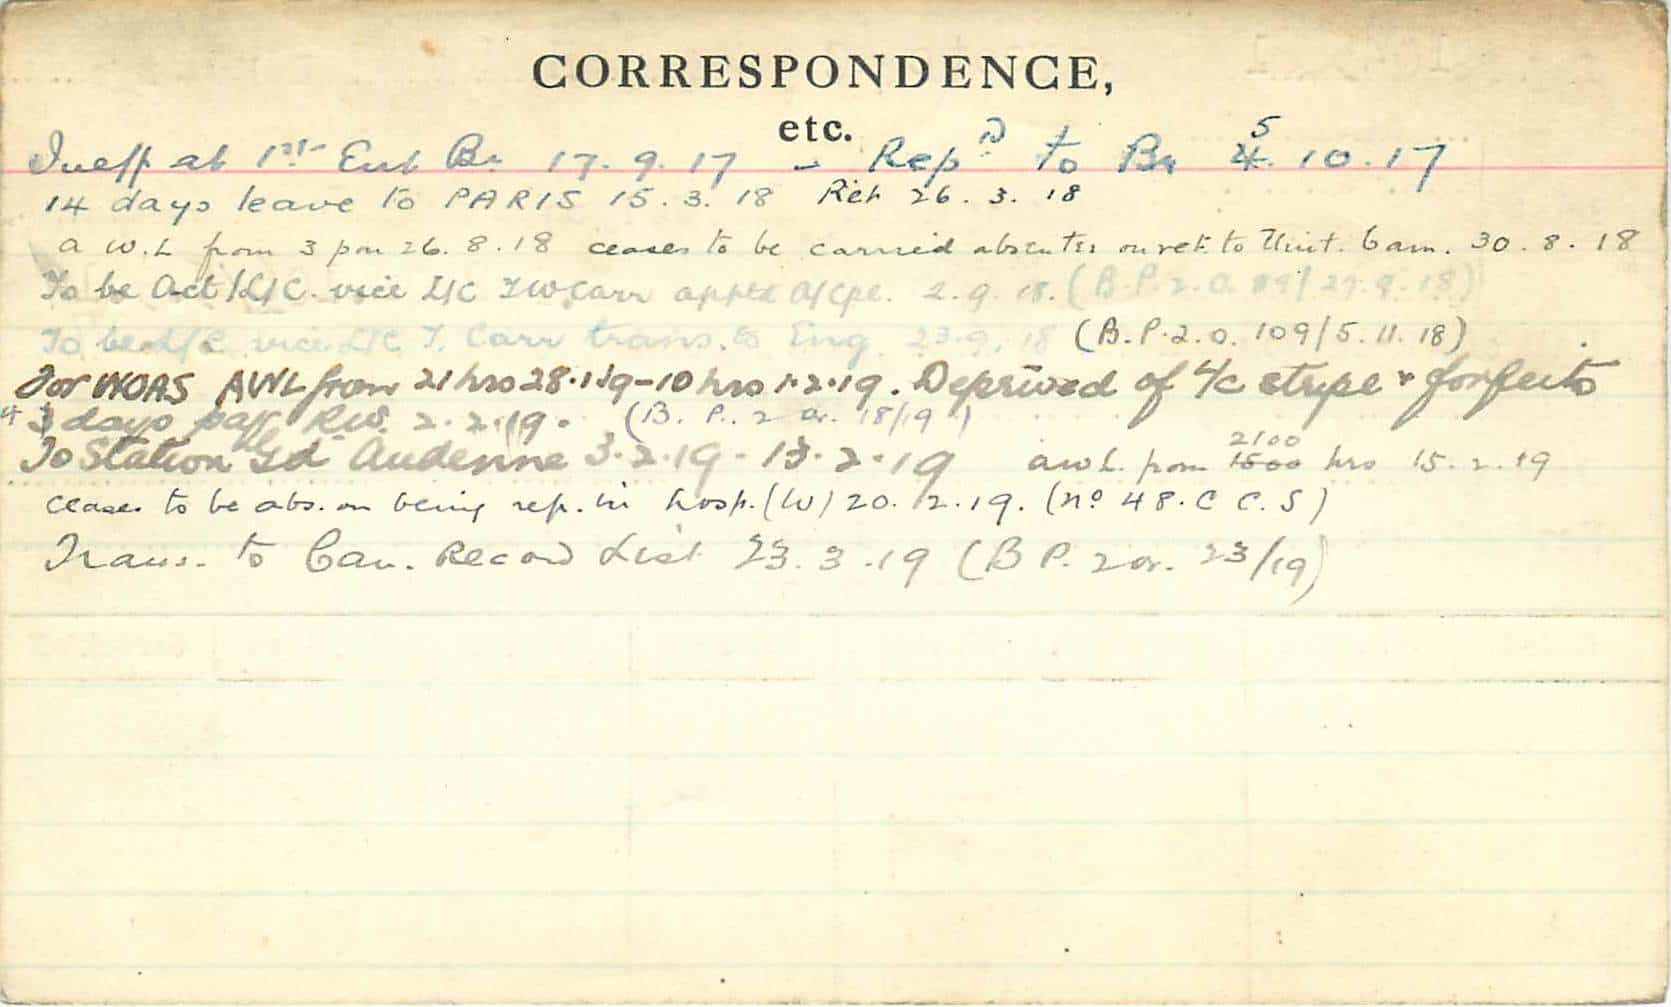 CORRESPONDENCE,
etc.
Ineff at 1st Ent Bn. 17.9.17 – Repd to Bn 4 5.10.17
14 days leave to PARIS 15.3.18 Ret 26.3.18
a W.L from 3 pm 26.8.18 ceases to be carried absentee on ret. to Unit. 6 am. 30.8.18
To be Act/L/C. vice L/C T W Carr apptd A/Cpl. 2.9.18. (B.P.2.O. 89/27.9.18)
To be L/C vice L/C T. Carr trans. to Eng. 23.9.18 (B.P.2.O. 109/5.11.18)
For WOAS AWL from 21 hrs 28.1.19-10 hrs 1.2.19. Deprived of L/c stripe & forfeits
4 days pay R.W. 2.2.19. (B.P. 2 Or. 18/19)
To Station Gd Audenne 3.2.19 - 13.2.19 awl. from 1500 2100 hrs 15.2.19
ceases to be abs. on being rep. in hosp. (W) 20.2.19. (No 48.C C.S)
Trans. to Can. Record List 23.3.19 (B P. 2 or. 23/19)